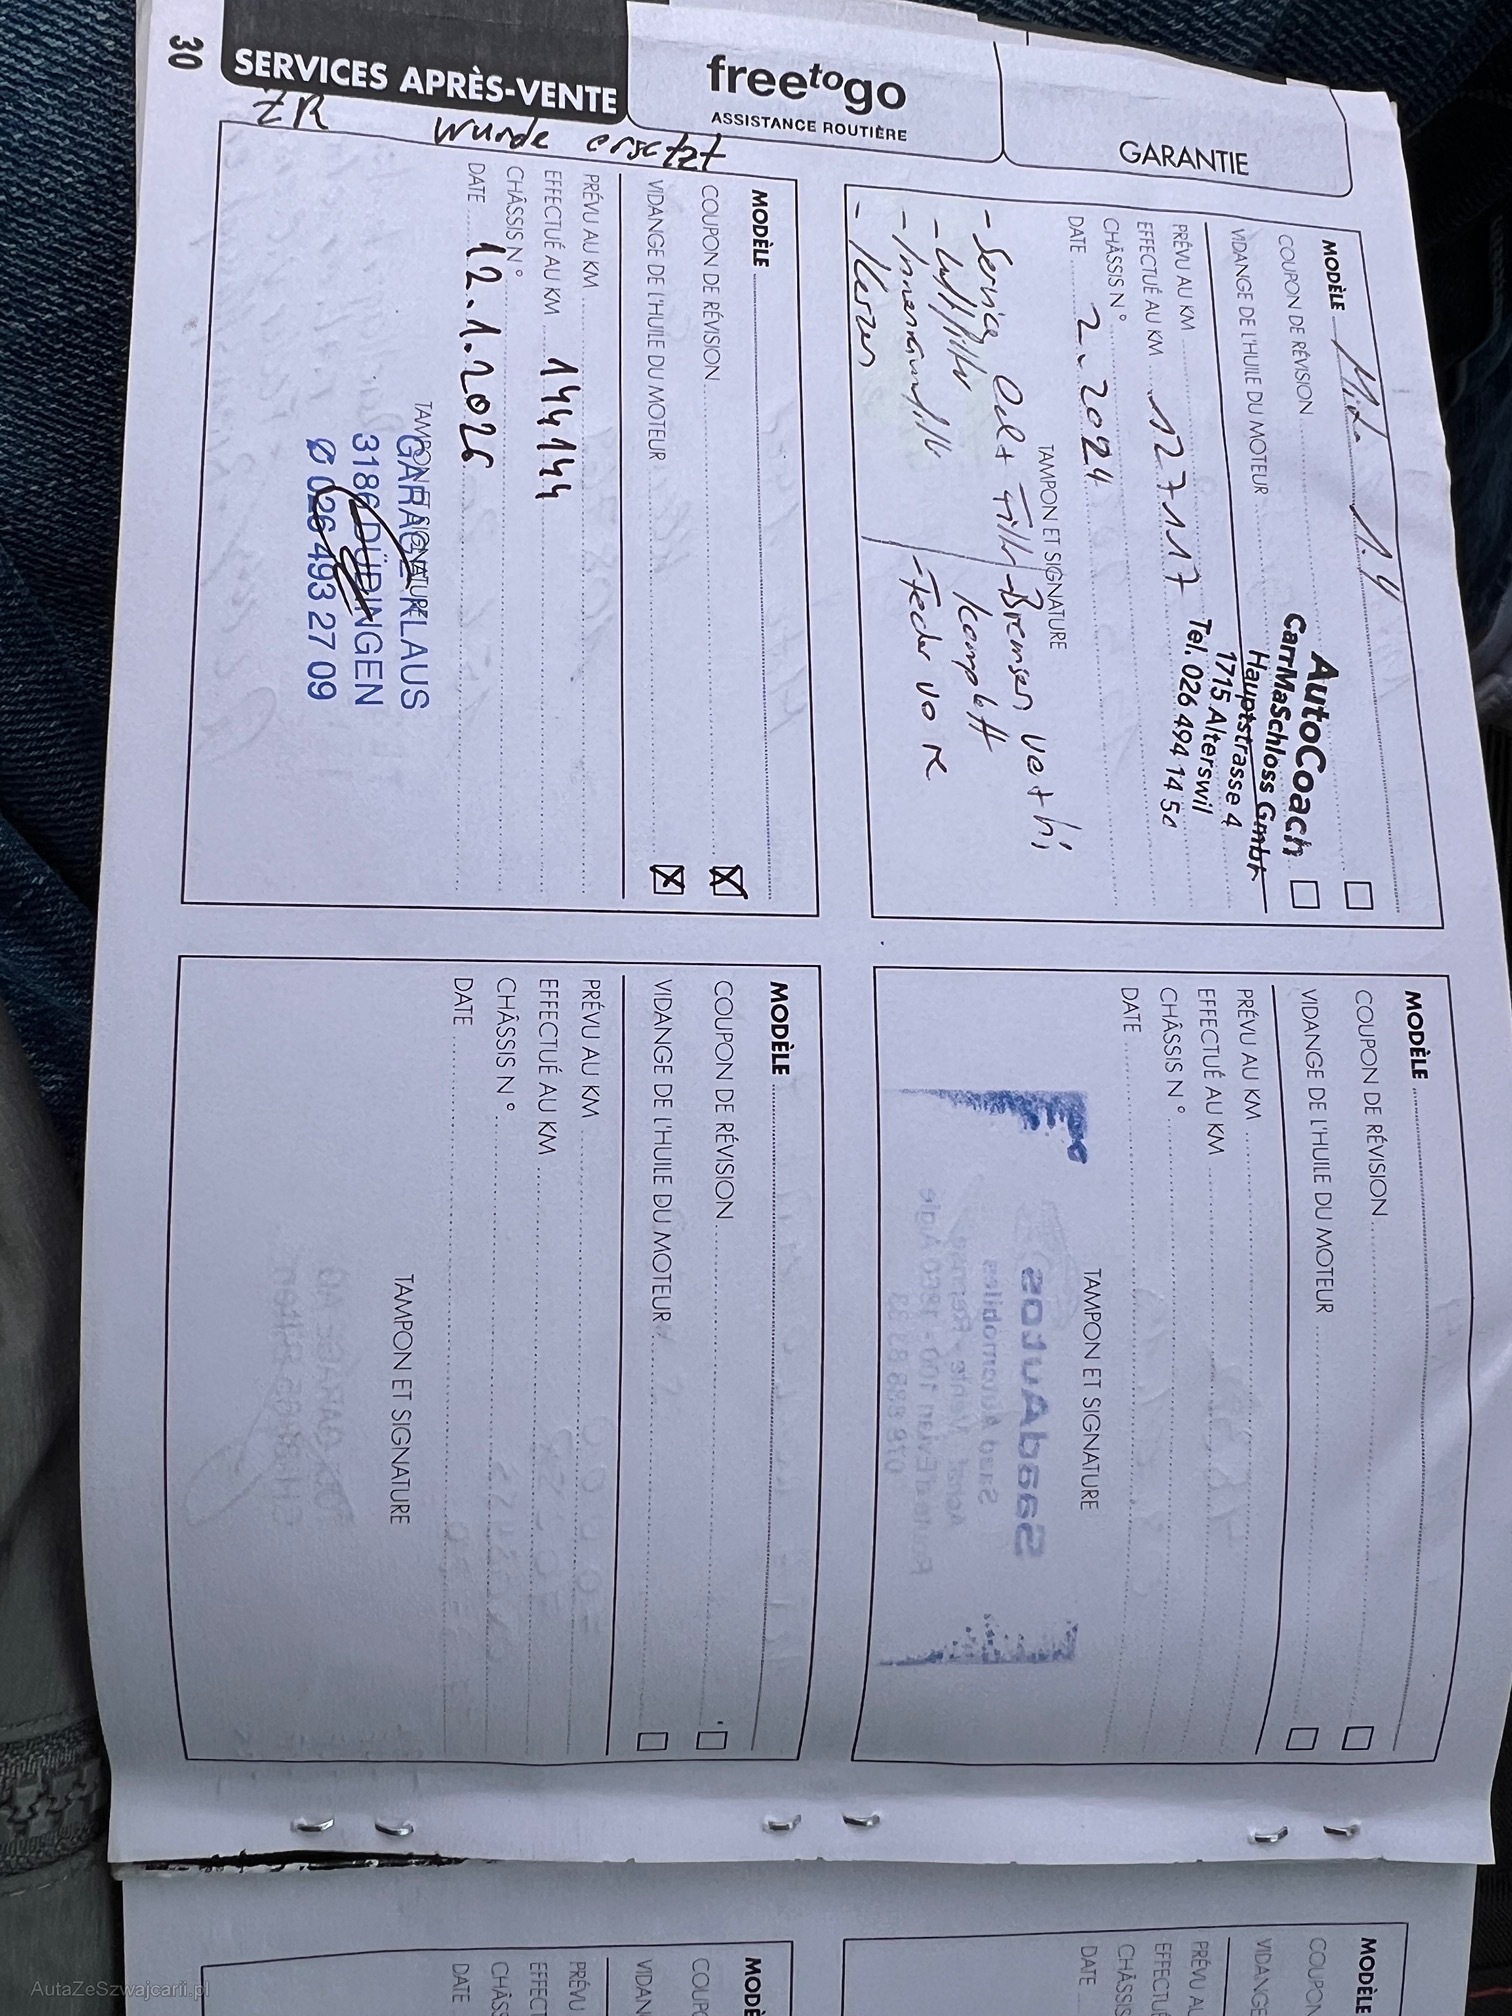 30
SERVICES APRÈS-VENTE
freetogo
ASSISTANCE ROUTIÈRE
GARANTIE
MODÈLE Mito 1.4
COUPON DE RÉVISION
VIDANGE DE L'HUILE DU MOTEUR
AutoCoach
CarrMaSchloss Gmbh
Hauptstrasse 4
1715 Alterswil
Tel. 026 494 14 54
PRÉVU AU KM
EFFECTUÉ AU KM 127117
CHÂSSIS N°
DATE 2. 2024
TAMPON ET SIGNATURE
- Service Oel + Filter
- Luftfilter
- Innenraumfilter
- Kerzen
- Bremsen vo + hi
komplett
- Feder vo R
ZR wurde ersetzt
MODÈLE
COUPON DE RÉVISION X
VIDANGE DE L'HUILE DU MOTEUR X
PRÉVU AU KM
EFFECTUÉ AU KM 144144
CHÂSSIS N°
DATE 12.1.2026
TAMPON ET SIGNATURE
GARAGE KLAUS
3186 DÜDINGEN
Ø 026 493 27 09
MODÈLE
COUPON DE RÉVISION
VIDANGE DE L'HUILE DU MOTEUR
PRÉVU AU KM
EFFECTUÉ AU KM
CHÂSSIS N°
DATE
TAMPON ET SIGNATURE
SaadAutos
Saad Automobiles
Achat Vente - Reprise
Route d'Evian 100 - 1860 Aigle
MODÈLE
COUPON DE RÉVISION
VIDANGE DE L'HUILE DU MOTEUR
PRÉVU AU KM
EFFECTUÉ AU KM
CHÂSSIS N°
DATE
TAMPON ET SIGNATURE
MODÈLE
COUPON
VIDANGE
PRÉVU AU
EFFECTUÉ
CHÂSSIS
DATE
MODÈ
COUPO
VIDAN
PRÉVU
EFFECT
CHÂS
DATE
AutaZeSzwajcarii.pl